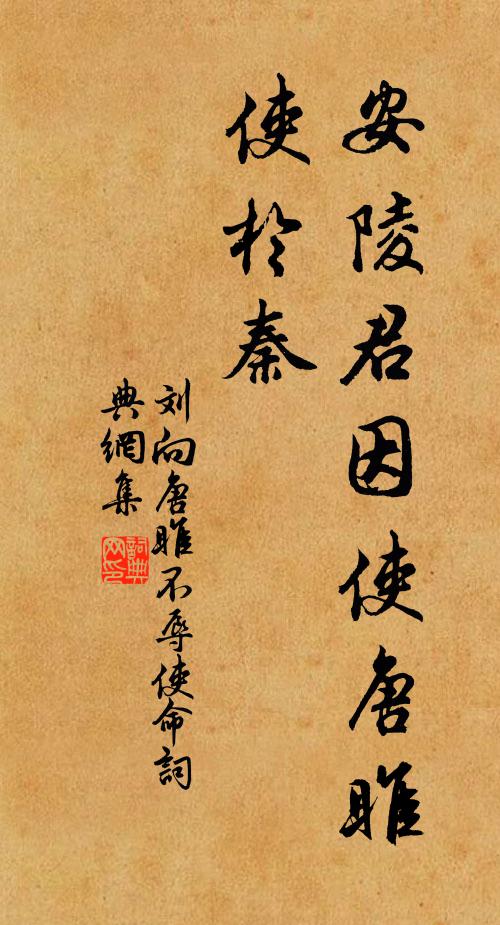 安陵君因使唐雎
使於秦
刘向唐雎不辱使命詞
典網集
詞典網印